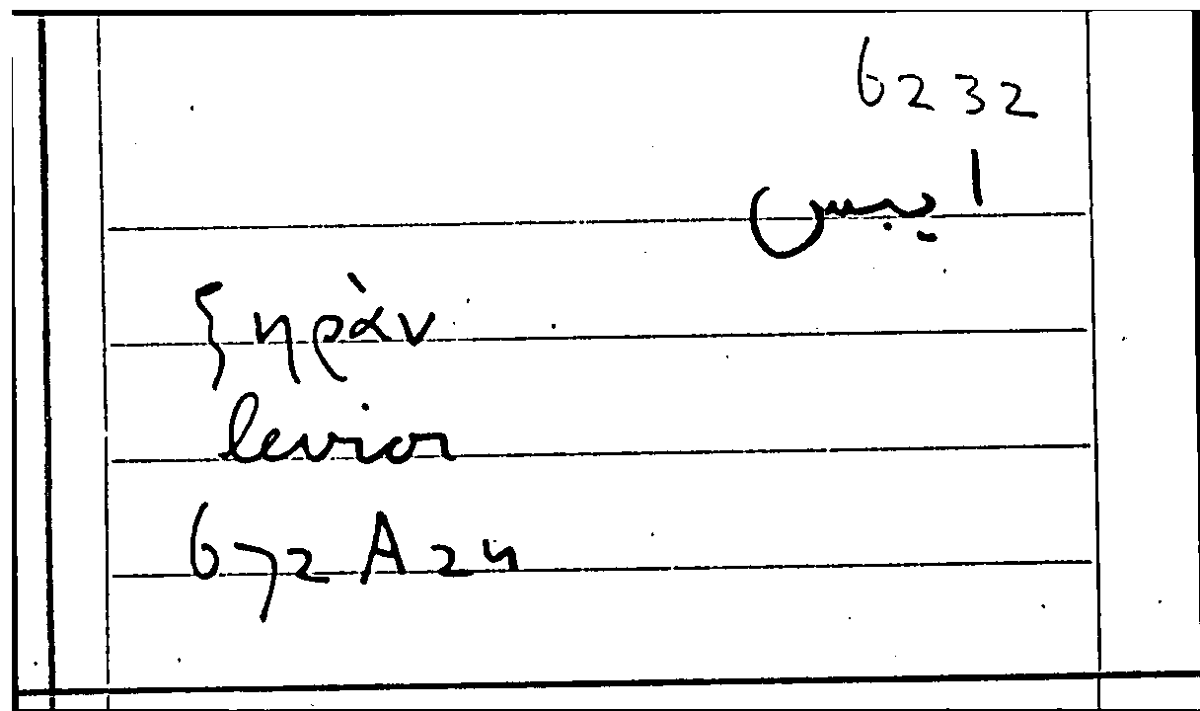 6232
ايبس
ξηράν
levior
672 A 24